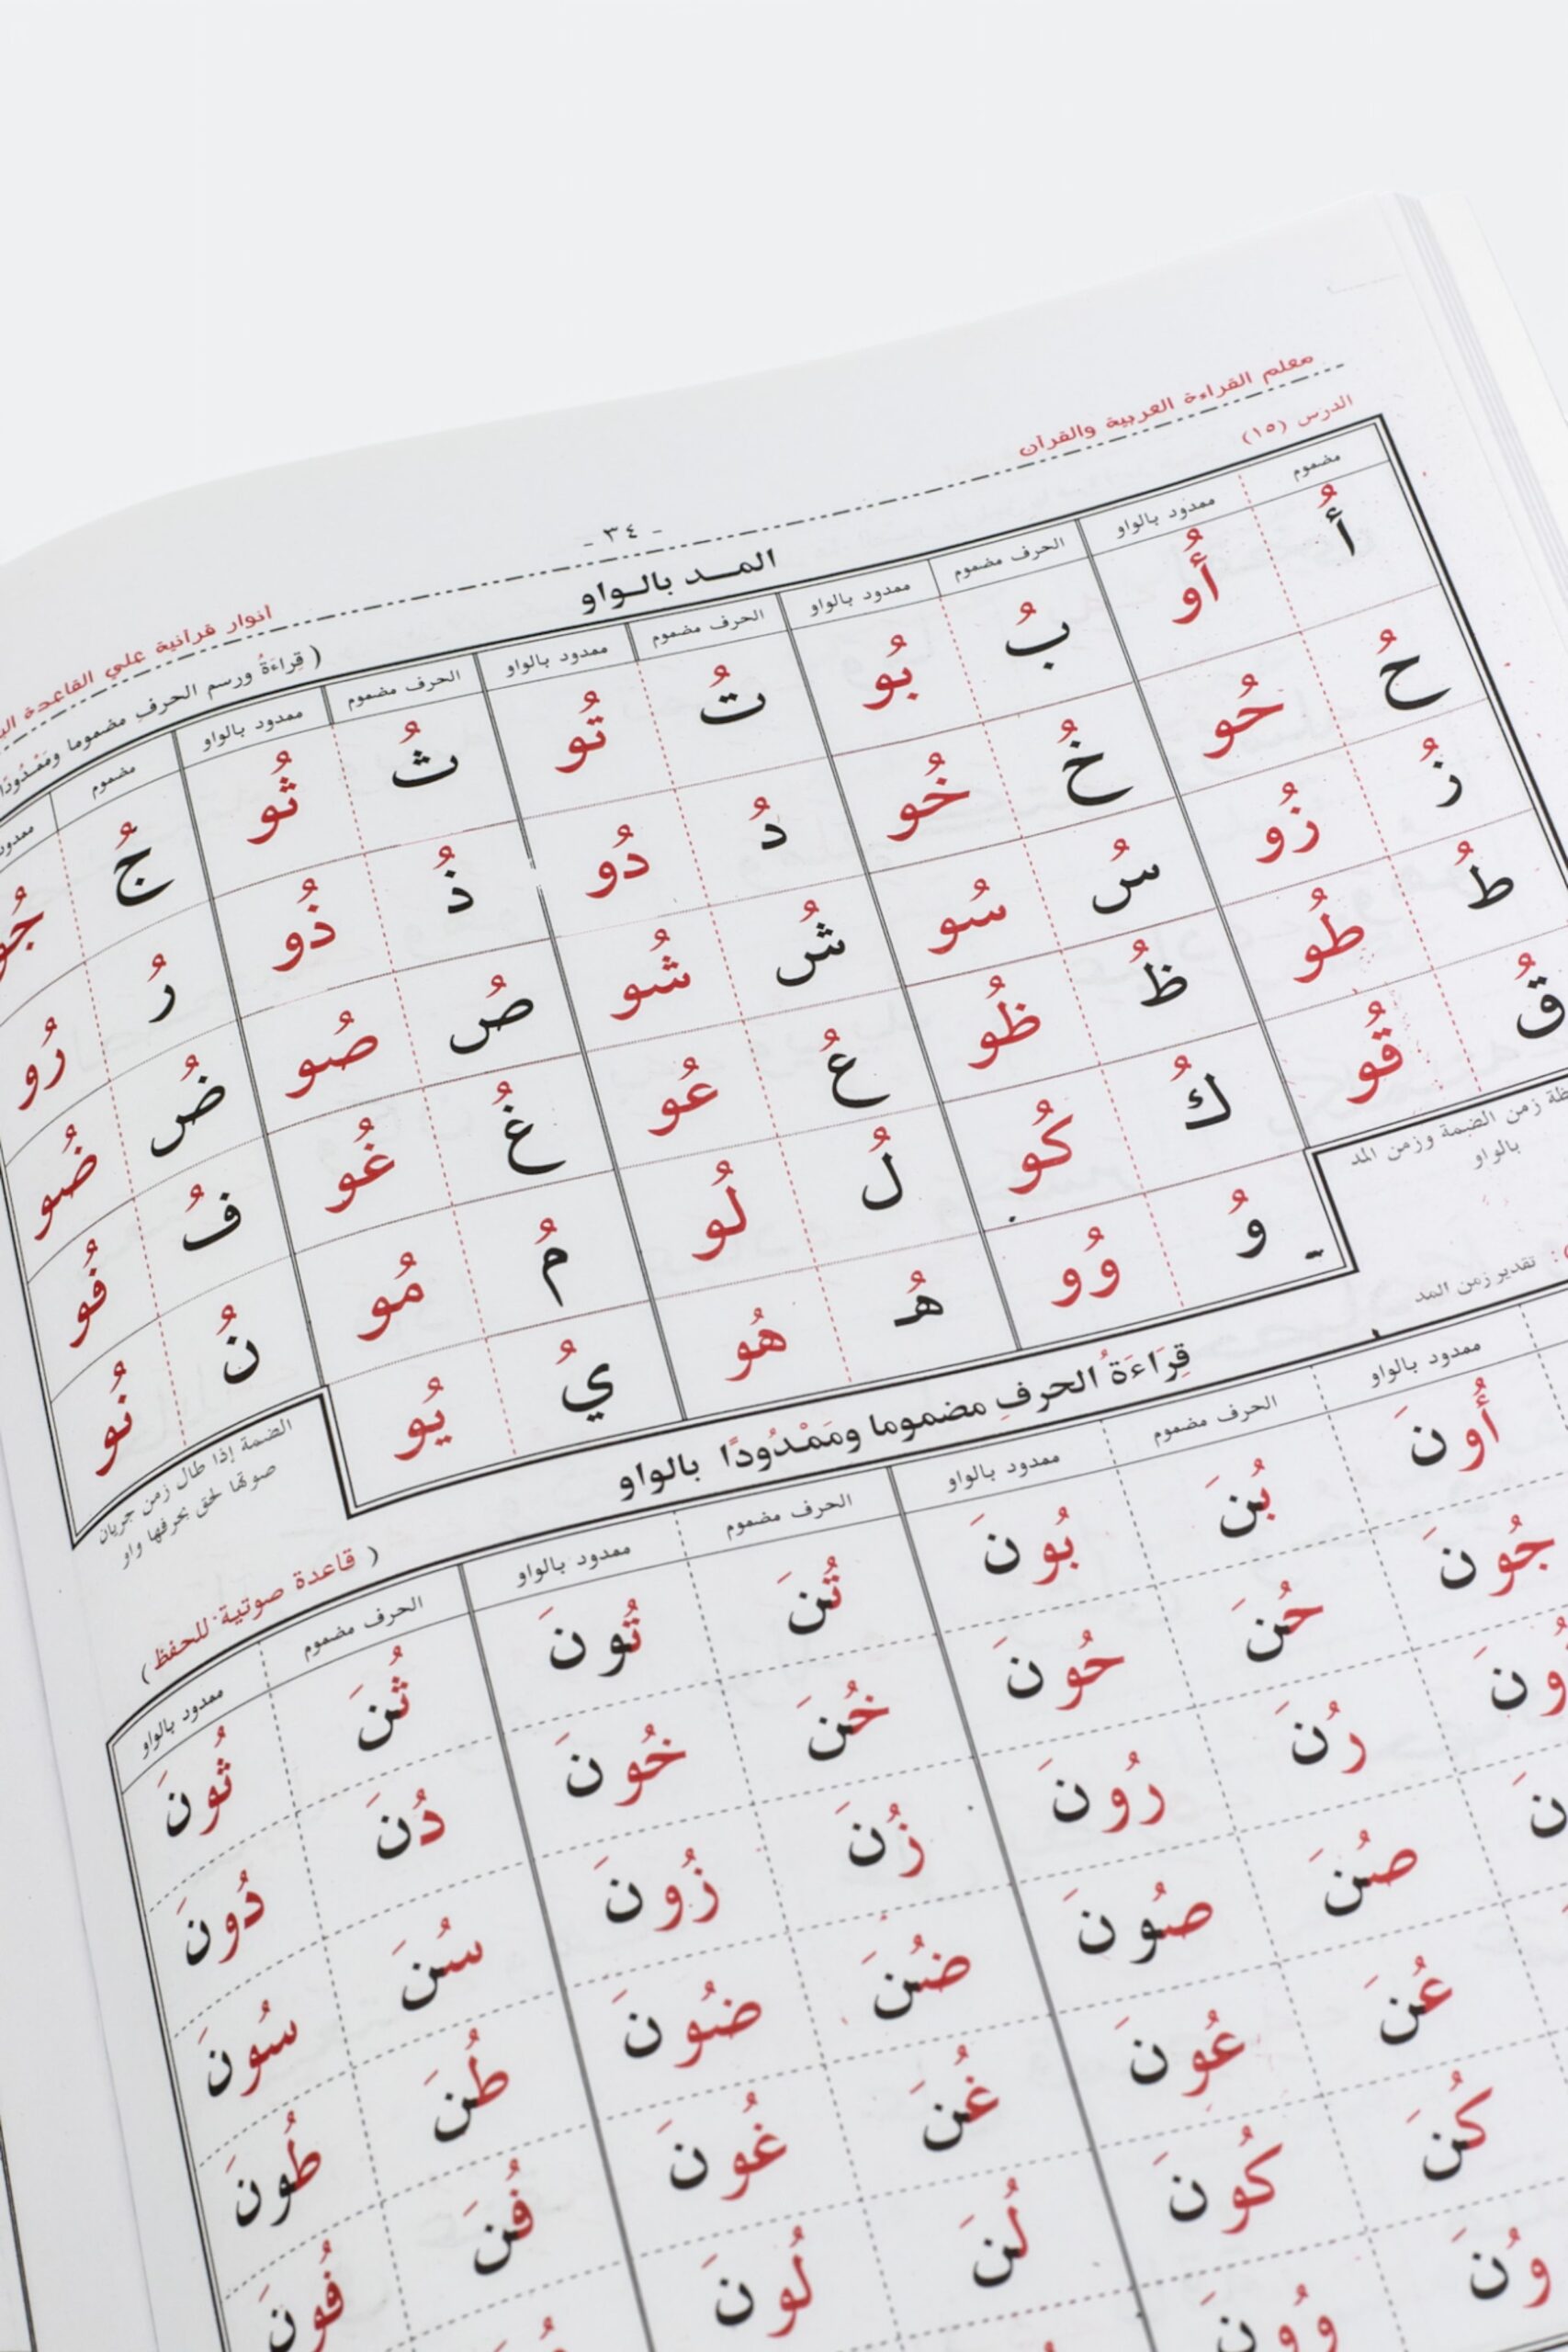 معلم القراءة العربية والقرآن
- ٣٤ -
انوار قرآنية علي القاعدة
الدرس (١٥)
المــد بالـواو
( قِراءَةُ ورسم الحرفِ مضموما ومَمْدُودًا
مضموم ممدود بالواو الحرف مضموم ممدود بالواو الحرف مضموم ممدود بالواو الحرف مضموم ممدود بالواو مضموم
أُ أُو بُ بُو تُ تُو ثُ ثُو جُ جُو
حُ حُو خُ خُو دُ دُو ذُ ذُو رُ رُو
زُ زُو سُ سُو شُ شُو صُ صُو ضُ ضُو
طُ طُو ظُ ظُو عُ عُو غُ غُو فُ فُو
قُ قُو كُ كُو لُ لُو مُ مُو نُ نُو
وُ وُو هُـ هُو يُ يُو
زمن الضمة وزمن المد
بالواو
تقدير زمن المد
الضمة إذا طال زمن جريان
صوتها لحق بحرفها واو
قِرَاءَةُ الحرفِ مضموما ومَمْدُودًا بالواو
( قاعدة صوتية للحفظ )
ممدود بالواو الحرف مضموم ممدود بالواو الحرف مضموم ممدود بالواو الحرف مضموم ممدود بالواو
أُونَ بُنَ بُونَ تُنَ تُونَ ثُنَ ثُونَ
جُونَ حُنَ حُونَ خُنَ خُونَ دُنَ دُونَ
رُنَ رُونَ زُنَ زُونَ سُنَ سُونَ
صُنَ صُونَ ضُنَ ضُونَ طُنَ طُونَ
عُنَ عُونَ غُنَ غُونَ فُنَ فُونَ
كُنَ كُونَ لُنَ لُونَ
وُنَ وُونَ